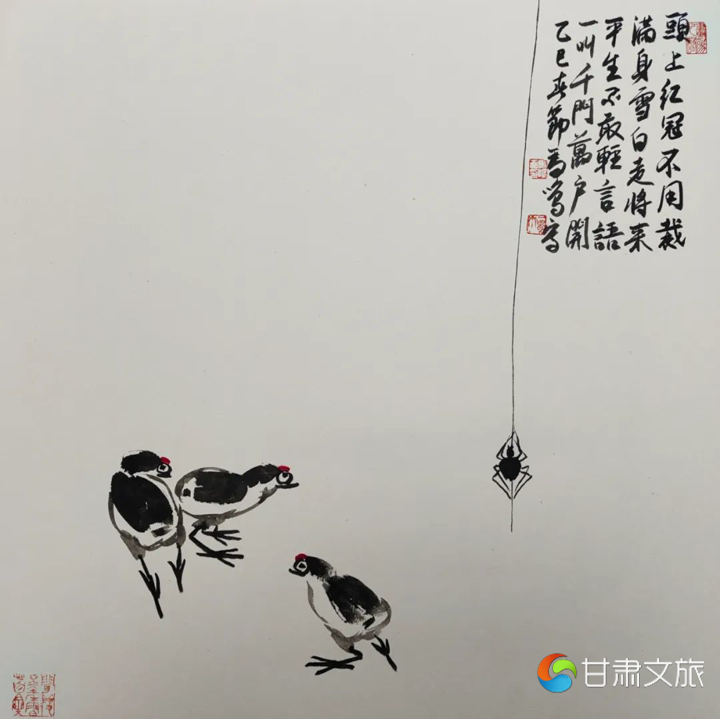 頭上红冠不用裁
满身雪白走将来
平生不敢輕言語
一叫千門萬户開
乙巳春節馬鸣寫
甘肃文旅